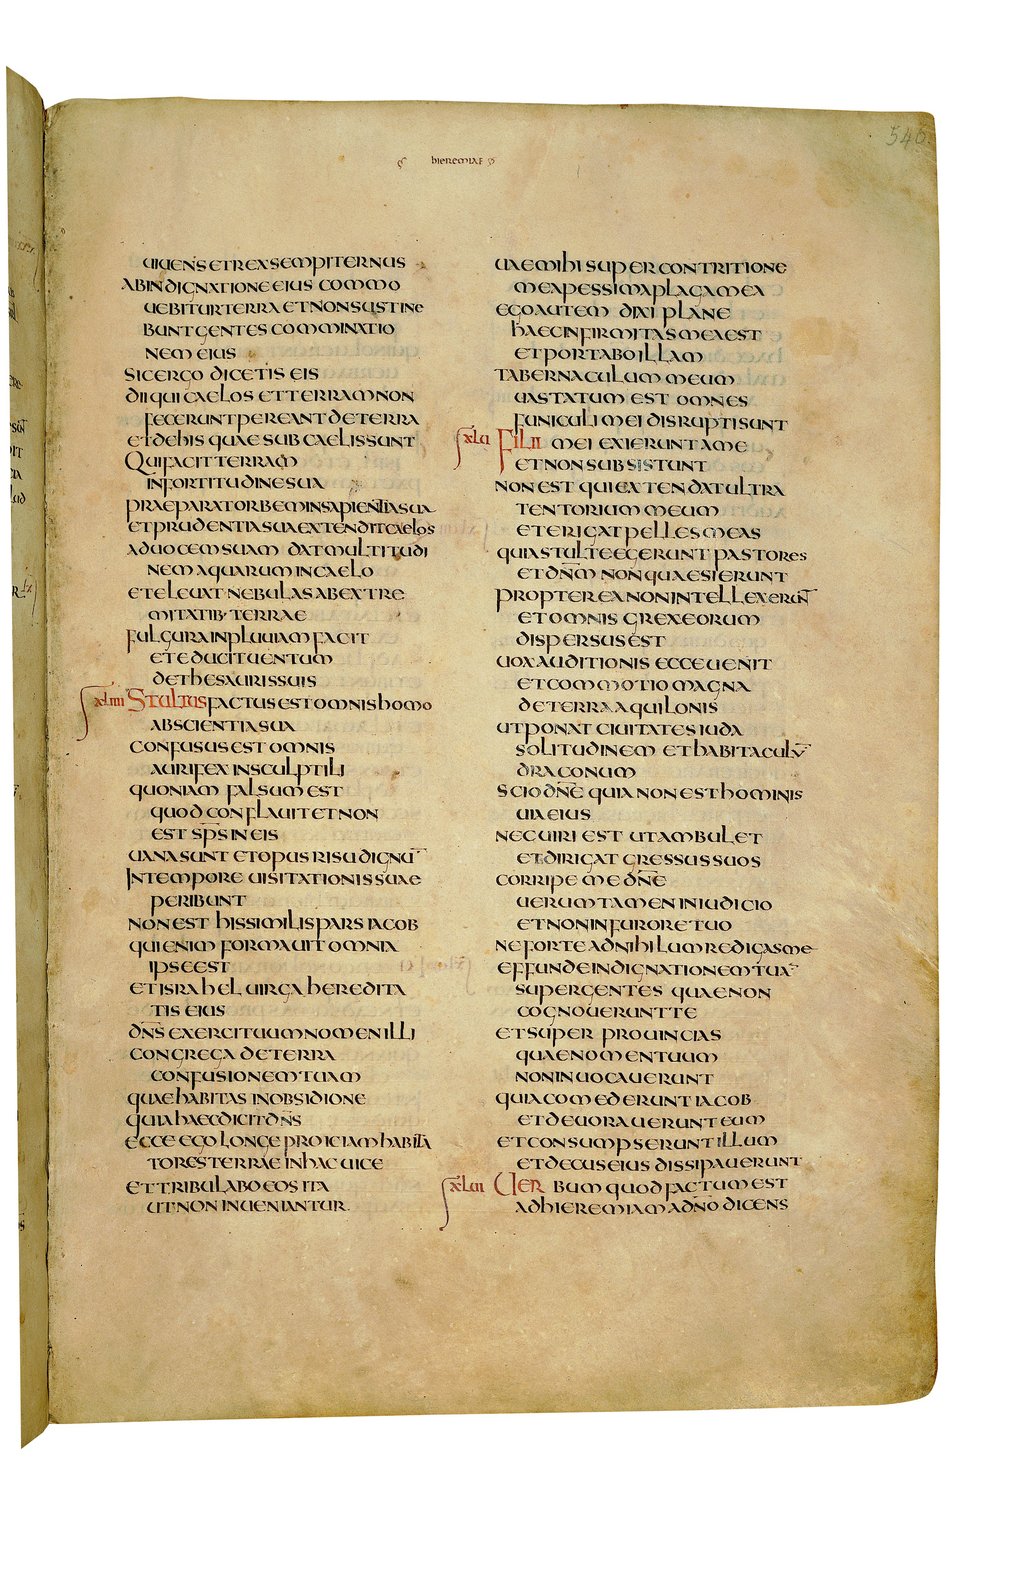 546.
hieremiae
uiuens et rex sempiternus
ab indignatione eius commo
uebitur terra et non sustine
bunt gentes comminatio
nem eius
sic ergo dicetis eis
dii qui caelos et terram non
fecerunt pereant de terra
et de his quae sub caelis sunt
Qui facit terram
in fortitudine sua
praeparat orbem in sapientia sua
et prudentia sua extendit caelos
ad uocem suam dat multitudi
nem aquarum in caelo
et eleuat nebulas ab extre
mitatib· terrae
fulgura in pluuiam facit
et educit uentum
de thesauris suis
xliiii Stultus factus est omnis homo
ab scientia sua
confusus est omnis
aurifex in sculptili
quoniam falsum est
quod conflauit et non
est sp̅s in eis
uana sunt et opus risu dignu̅
In tempore uisitationis suae
peribunt
non est his similis pars iacob
qui enim formauit omnia
ipse est
et israhel uirga heredita
tis eius
dn̅s exercituum nomen illi
congrega de terra
confusionem tuam
quae habitas in obsidione
quia haec dicit dn̅s
ecce ego longe proiciam habita
tores terrae in hac uice
et tribulabo eos ita
ut non inueniantur.
uae mihi super contritione
mea pessima plaga mea
ego autem dixi plane
haec infirmitas mea est
et portabo illam
tabernaculum meum
uastatum est omnes
funiculi mei disrupti sunt
xlu Filii mei exierunt a me
et non subsistunt
non est qui extendat ultra
tentorium meum
et erigat pelles meas
quia stulte egerunt pastores
et dn̅m non quaesierunt
propterea non intellexerun̅t
et omnis grex eorum
dispersus est
uox auditionis ecce uenit
et commotio magna
de terra aquilonis
ut ponat ciuitates iuda
solitudinem et habitaculu̅
draconum
scio dn̅e quia non est hominis
uia eius
nec uiri est ut ambulet
et dirigat gressus suos
corripe me dn̅e
uerum tamen in iudicio
et non in furore tuo
ne forte ad nihilum redigas me
effunde indignationem tua̅
super gentes quae non
cognouerunt te
et super prouincias
quae nomen tuum
non inuocauerunt
quia comederunt iacob
et deuorauerunt eum
et consumpserunt illum
et decus eius dissipauerunt
xlui Uerbum quod factum est
ad hieremiam a dn̅o dicens